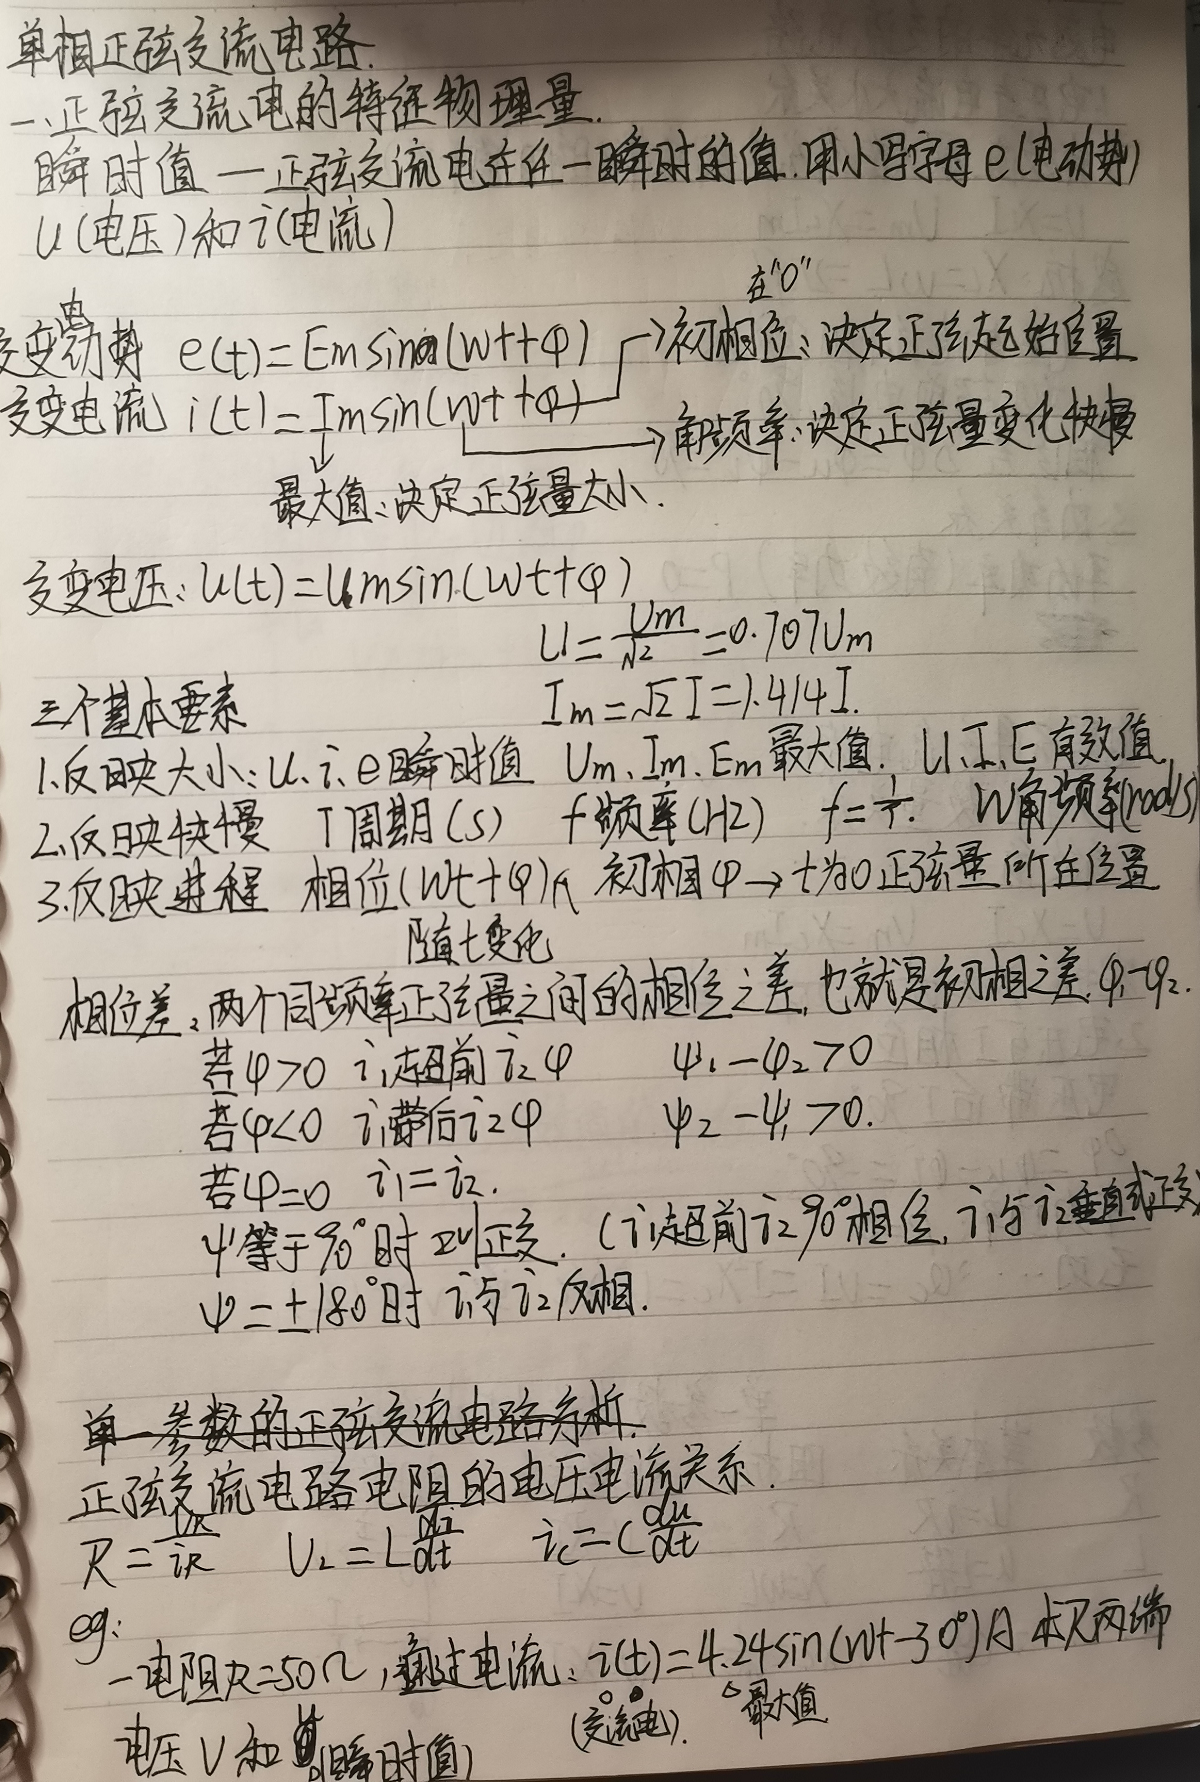 单相正弦交流电路.
一、正弦交流电的特征物理量.
瞬时值 — 正弦交流电在任一瞬时的值.用小写字母e(电动势)
u(电压)和i(电流)
在"0"
交变电动势 e(t)=Emsin(wt+φ) → 初相位:决定正弦起始位置
交变电流 i(t)=Imsin(wt+φ) → 角频率:决定正弦量变化快慢
最大值:决定正弦量大小.
交变电压:u(t)=Umsin(wt+φ)
U=Um/√2=0.707Um
三个基本要素 Im=√2 I=1.414I.
1.反映大小:u、i、e瞬时值 Um、Im、Em最大值. U、I、E有效值.
2.反映快慢 T周期(s) f频率(HZ) f=1/T. w角频率(rad/s)
3.反映进程 相位(wt+φ), 初相φ→t为0正弦量所在位置
随t变化
相位差:两个同频率正弦量之间的相位之差,也就是初相之差.φ1-φ2.
若φ>0 i1超前i2φ ψ1-φ2>0
若φ<0 i1滞后i2φ ψ2-ψ1>0.
若φ=0 i1=i2.
ψ等于90°时 叫正交.(i1超前i2 90°相位,i1与i2垂直或正交)
ψ=±180°时 i1与i2反相.
单一参数的正弦交流电路分析.
正弦交流电路电阻的电压电流关系.
R=UR/iR UL=L di/dt ic=C du/dt
eg:
一电阻R=50Ω,通过电流:i(t)=4.24sin(wt-30°)A 求R两端
(交流电). 最大值
电压U和u(瞬时值)